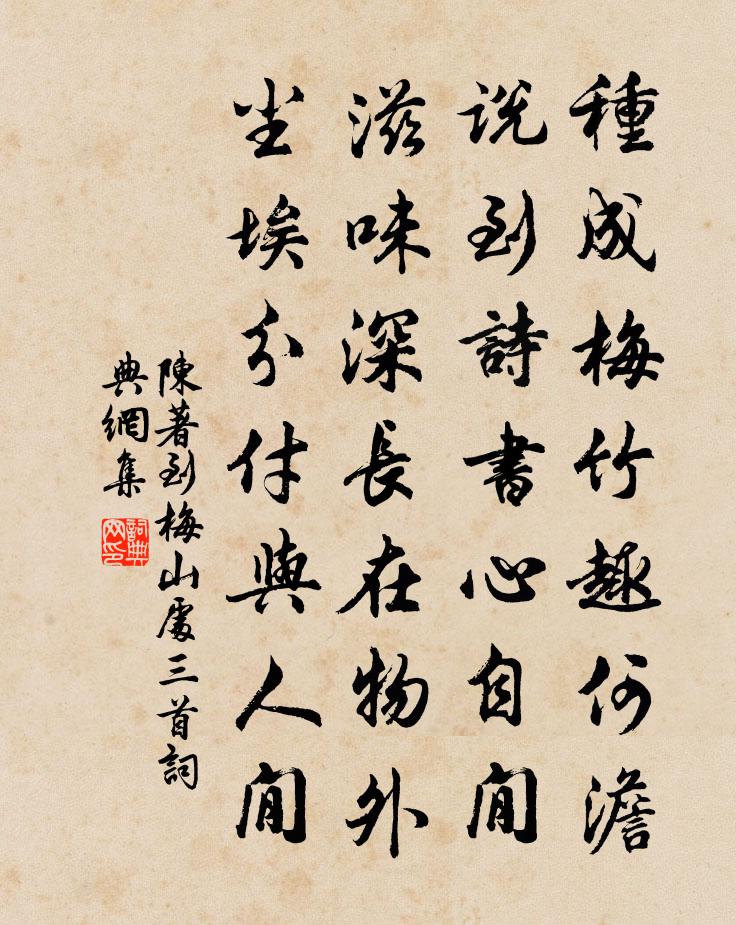 種成梅竹趣何澹
説到詩書心自閒
滋味深長在物外
尘埃分付與人閒
陳著到梅山處三首詞
典網集
詞典
网印